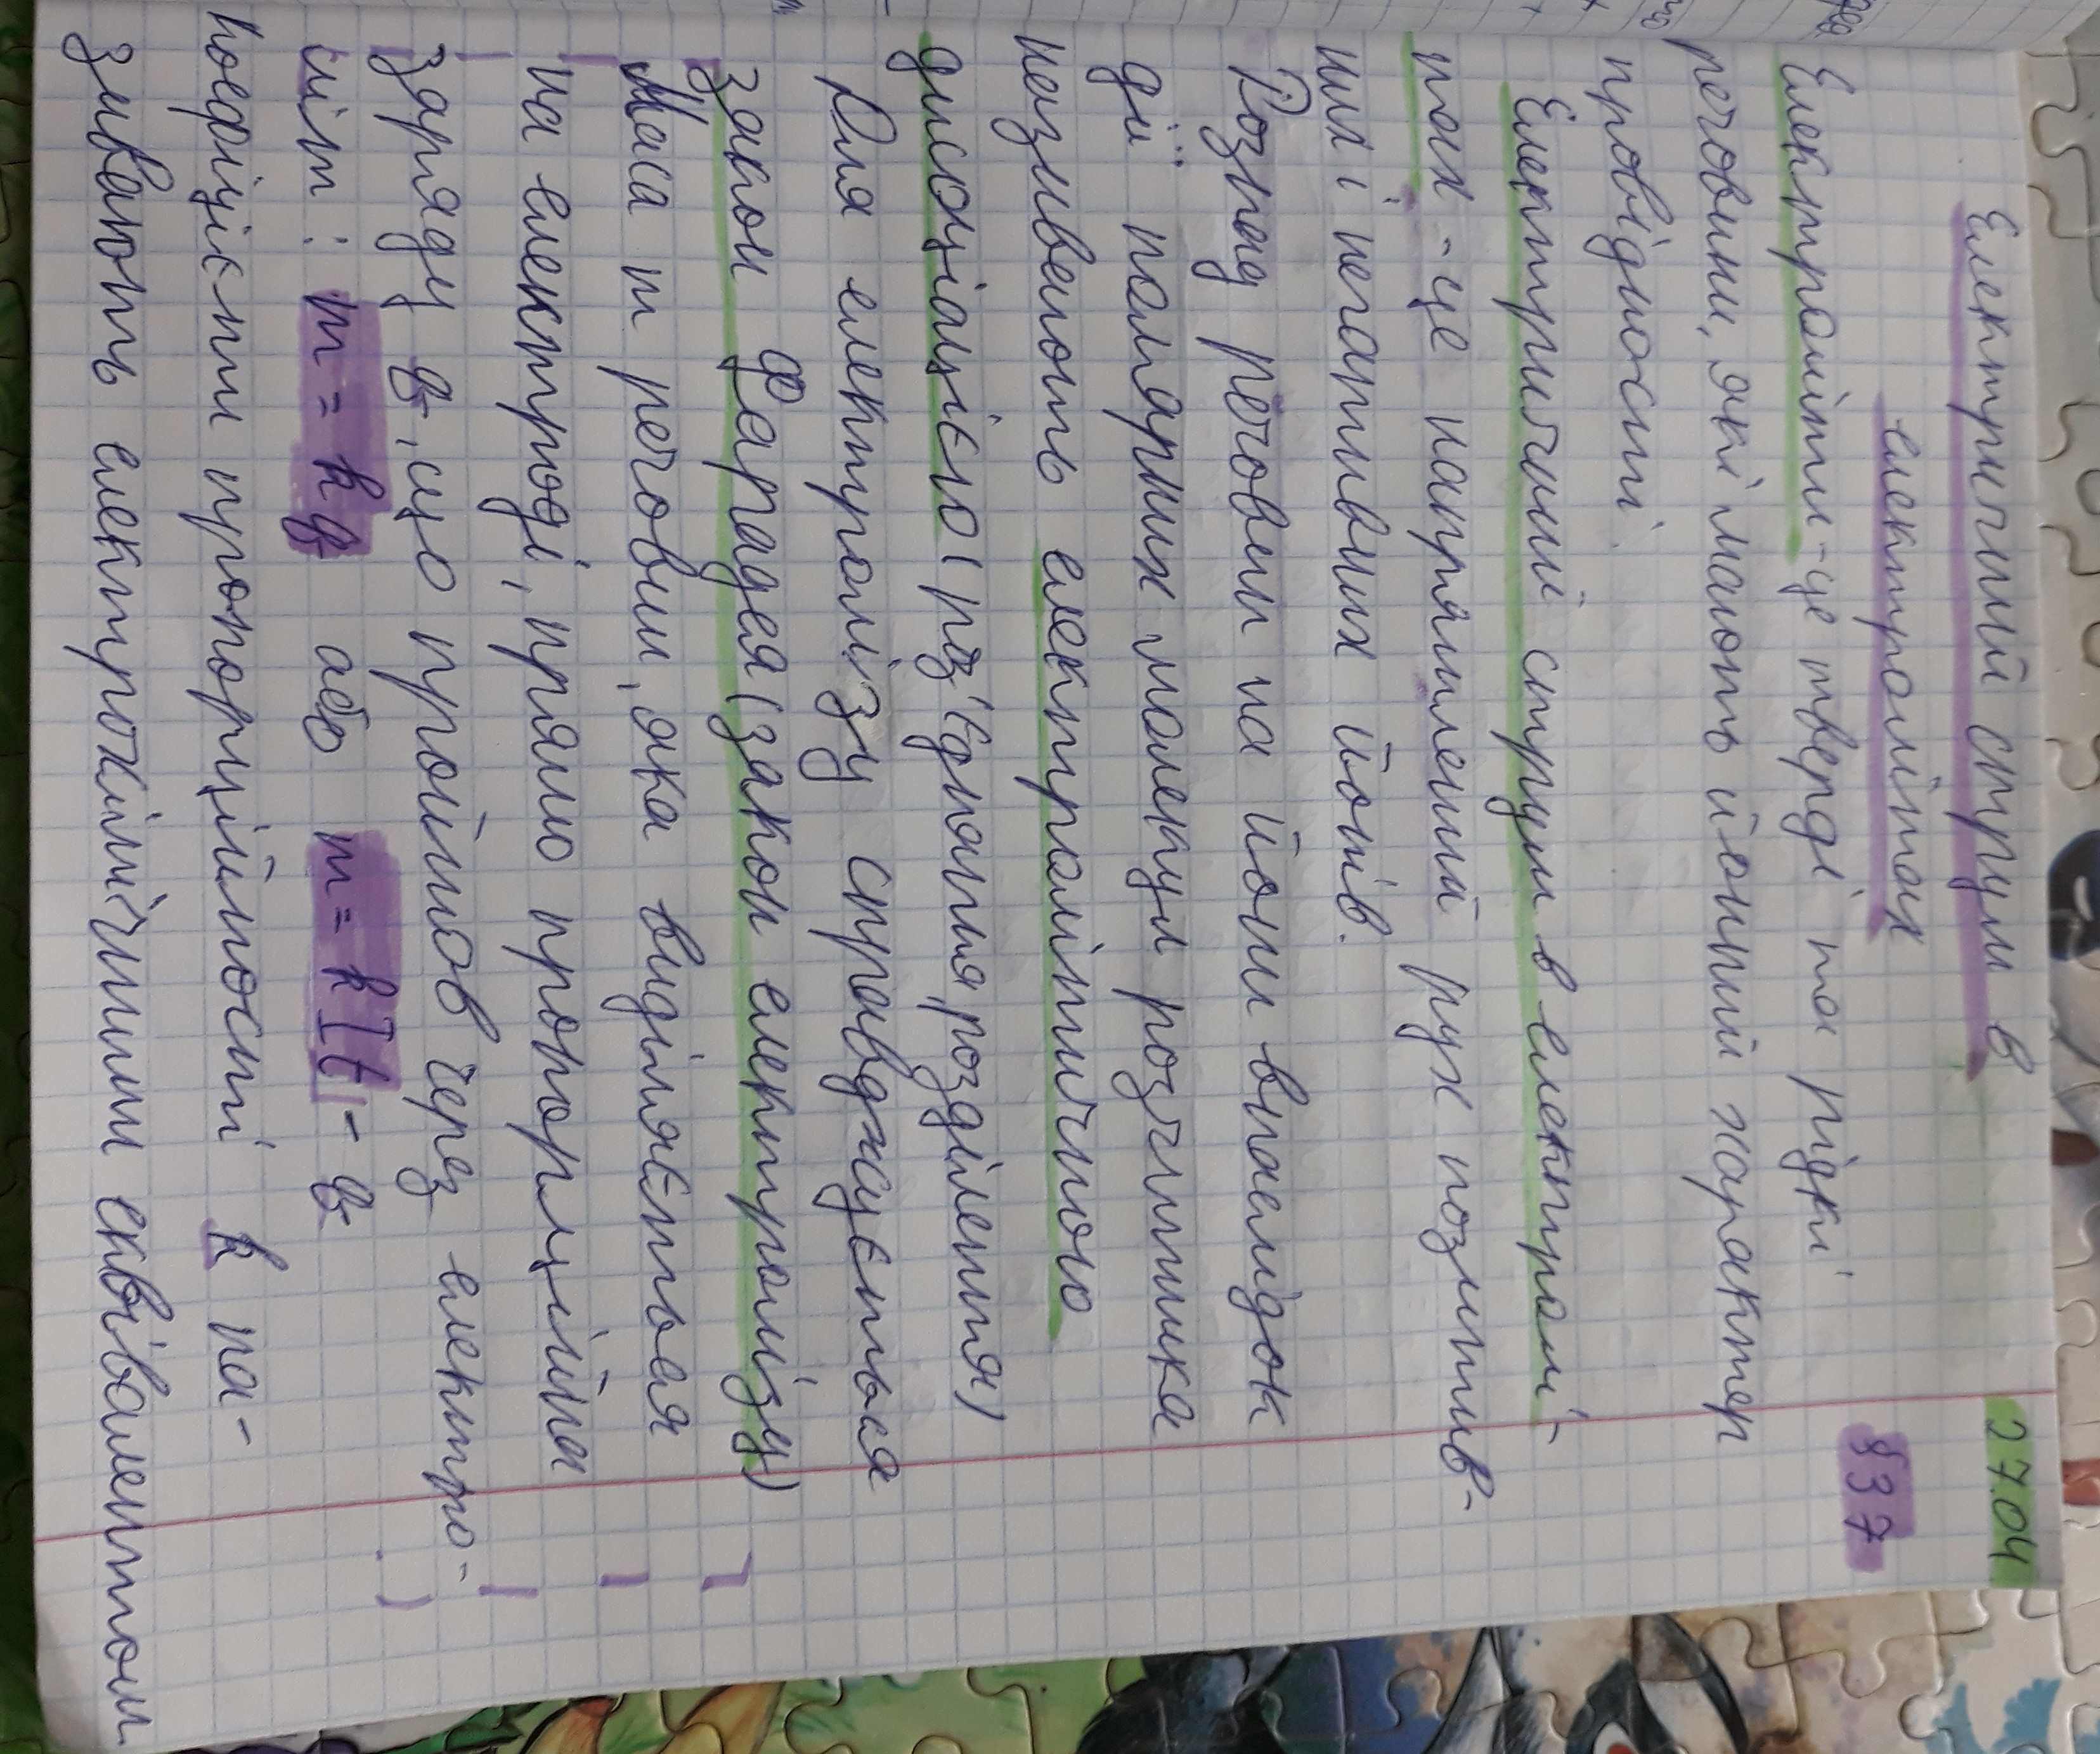 27.04
Електричний струм в
§37
електролітах
Електроліти - це тверді та рідкі
речовини, які мають йонний характер
провідності.
Електричний струм в електролі-
тах - це напрямлений рух позитив-
них і негативних йонів.
Розпад речовин на йони внаслідок
дії полярних молекул розчинника
називають електролітичною
дисоціацією (роз'єднання, розділення)
Для електролізу справджується
закон Фарадея (закон електролізу)
Маса m речовини, яка виділяється
на електроді, прямо пропорційна
заряду q, що пройшов через електро-
літ: m = kq або m = kIt - q
Коефіцієнт пропорційності k на-
зивають електрохімічним еквівалентом